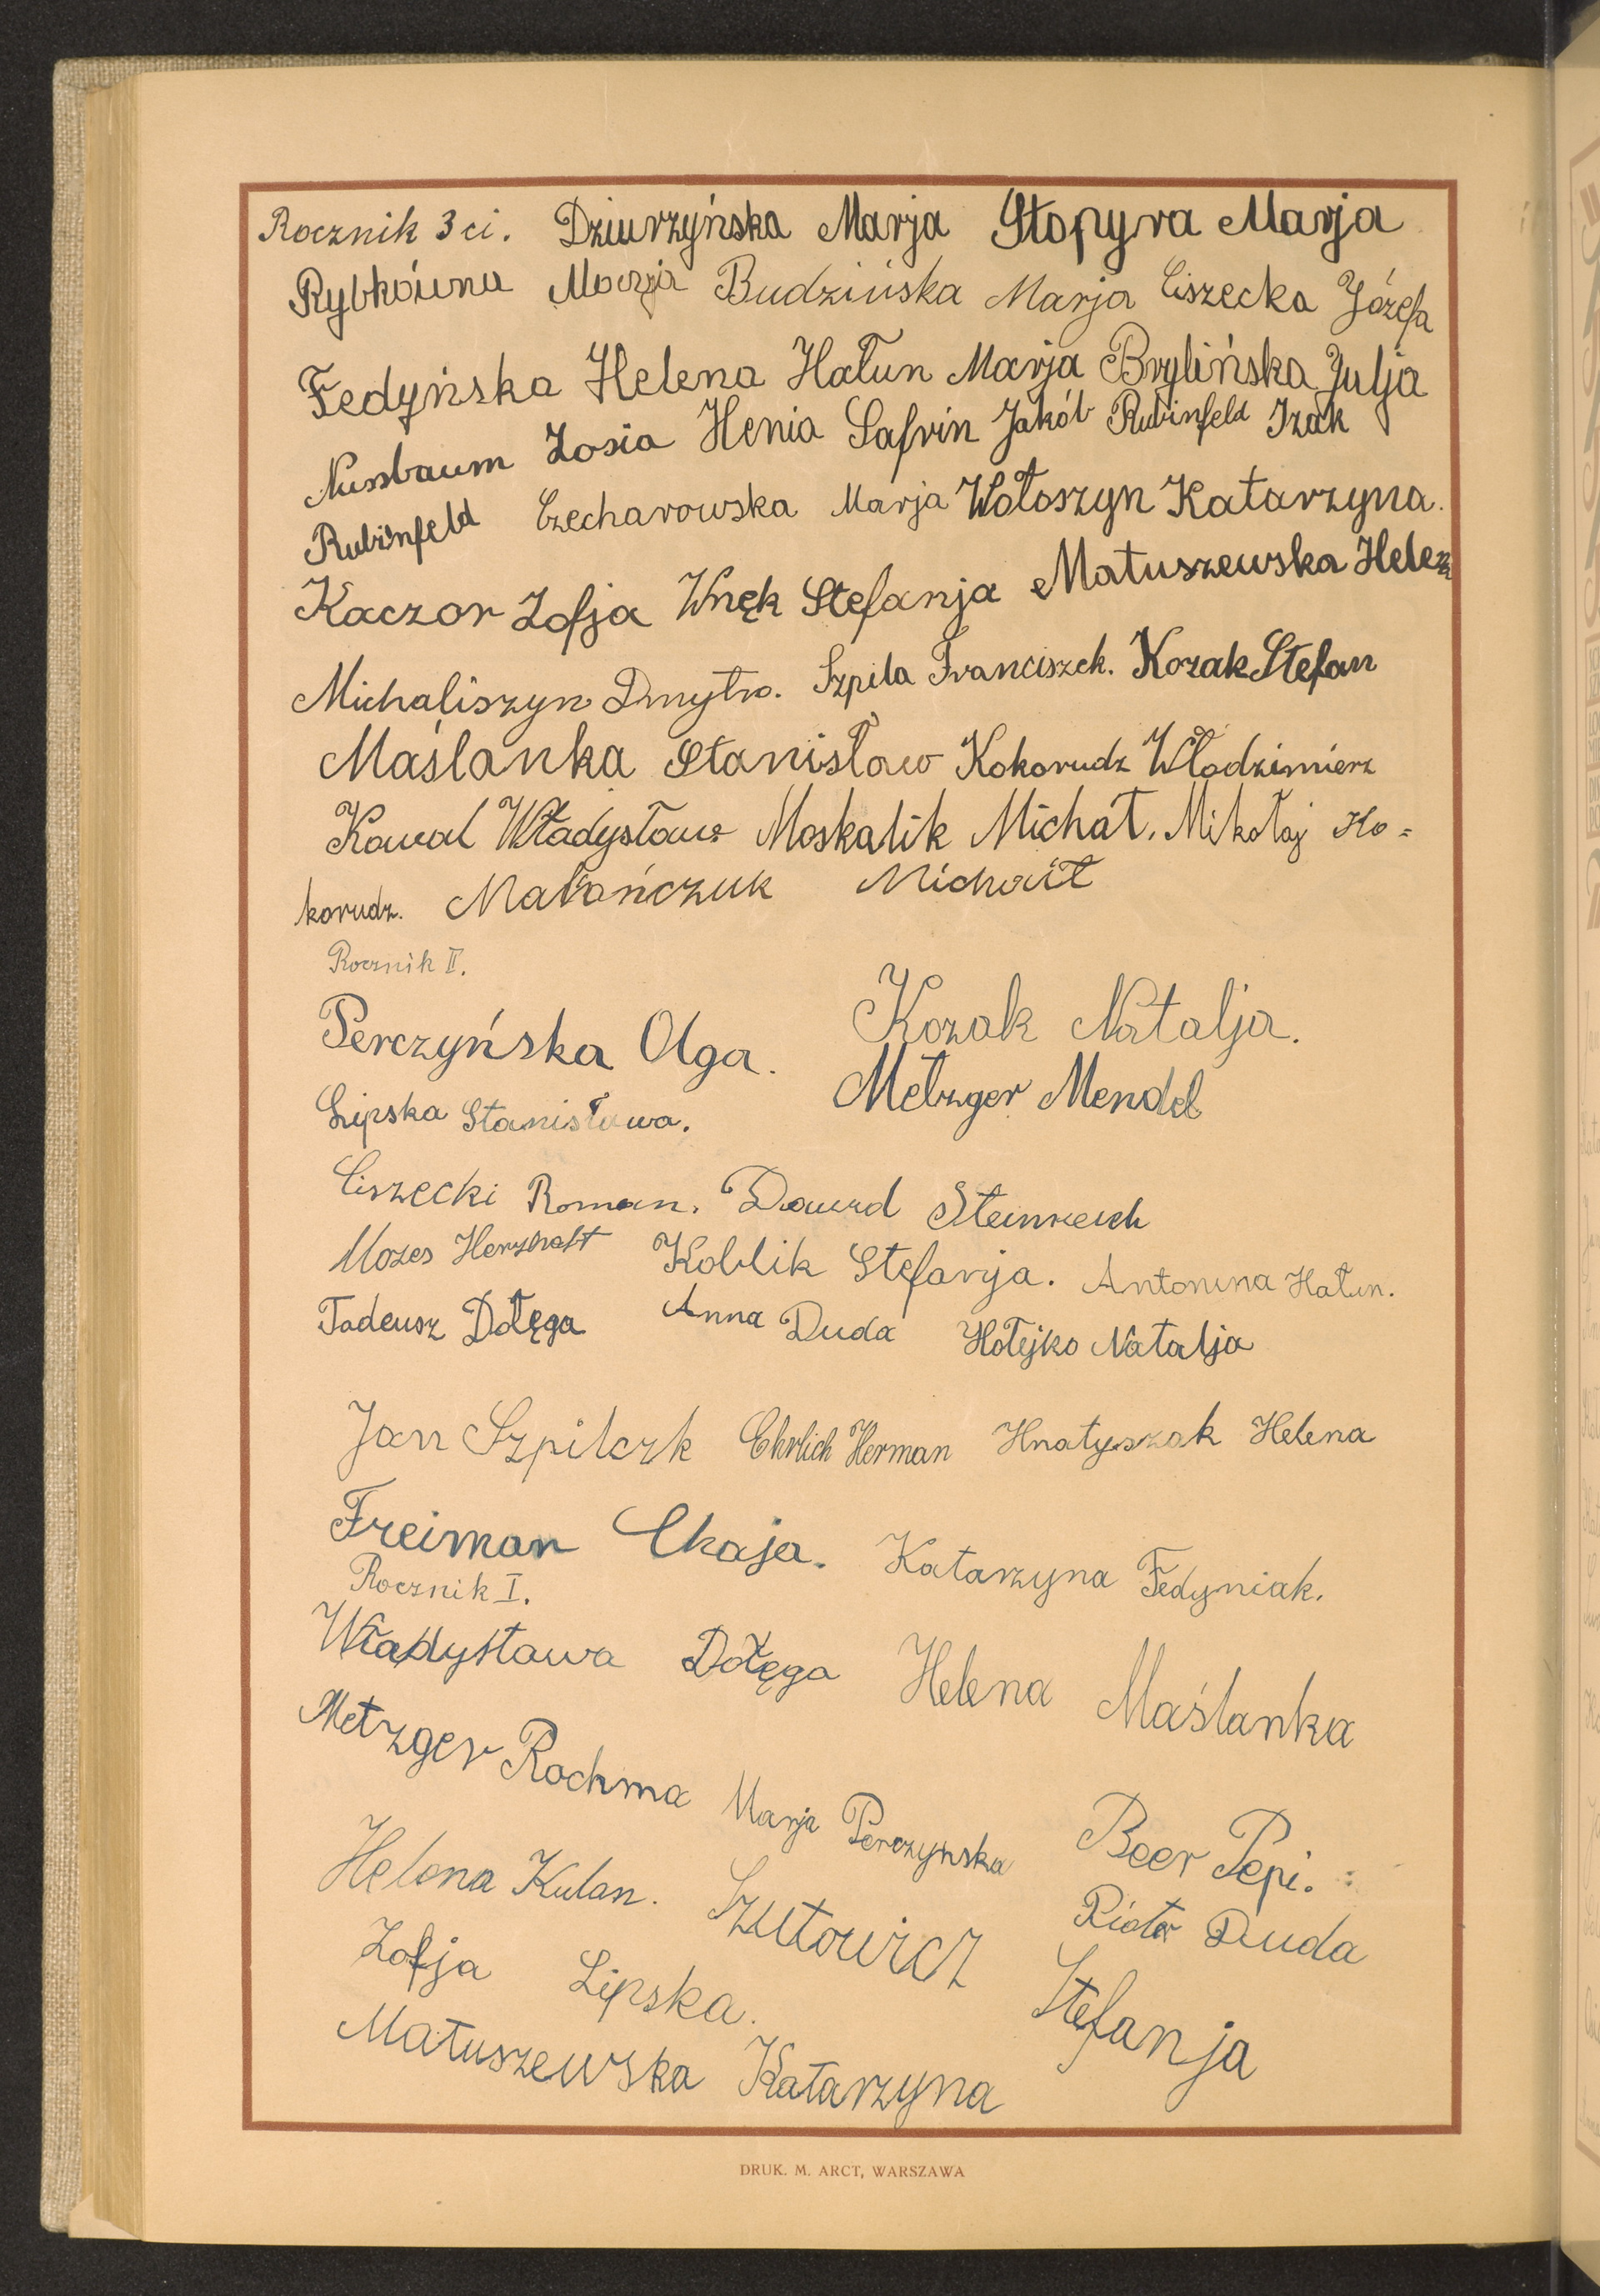 Rocznik 3 ci. Dziurzyńska Marja Stopyra Marja
Rybkówna Marja Budzińska Marja Ciszecka Józefa
Fedyńska Helena Hałun Marja Brylińska Julja
Nussbaum Zosia Henia Safrin Jakób Rubinfeld Izak
Rubinfeld Czecharowska Marja Wołoszyn Katarzyna.
Kaczor Zofja Wnęk Stefanja Matuszewska Helena
Michaliszyn Dmytro. Szpila Franciszek. Kozak Stefan
Maślanka Stanisław Kokorudz Włodzimierz
Kawal Władysław Moskalik Michał. Mikołaj Ko-
korudz. Małańczuk Michał
Rocznik II.
Perczyńska Olga. Kozak Natalja.
Lipska Stanisława. Metzger Mendel
Ciszecki Roman. Dawid Steinreich
Mozes Herzhaft Koblik Stefanja. Antonina Hałun.
Tadeusz Dołęga Anna Duda Hołejko Natalja
Jan Szpilczk Ehrlich Herman Hnatyszak Helena
Freiman Chaja. Katarzyna Fedyniak.
Rocznik I.
Władysława Dołęga Helena Maślanka
Metzger Rochma Marja Perczyńska Beer Pepi.
Helena Kulan. Szutowicz Stefanja Piotr Duda
Zofja Lipska.
Matuszewska Katarzyna
DRUK. M. ARCT, WARSZAWA